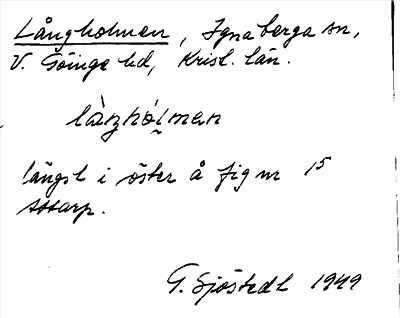 Långholmen, Ignaberga sn,
V. Göinge hd, Krist. län.
làŋhól̰man
längst i öster å fig nr 15
Attarp.
G. Sjöstedt 1949